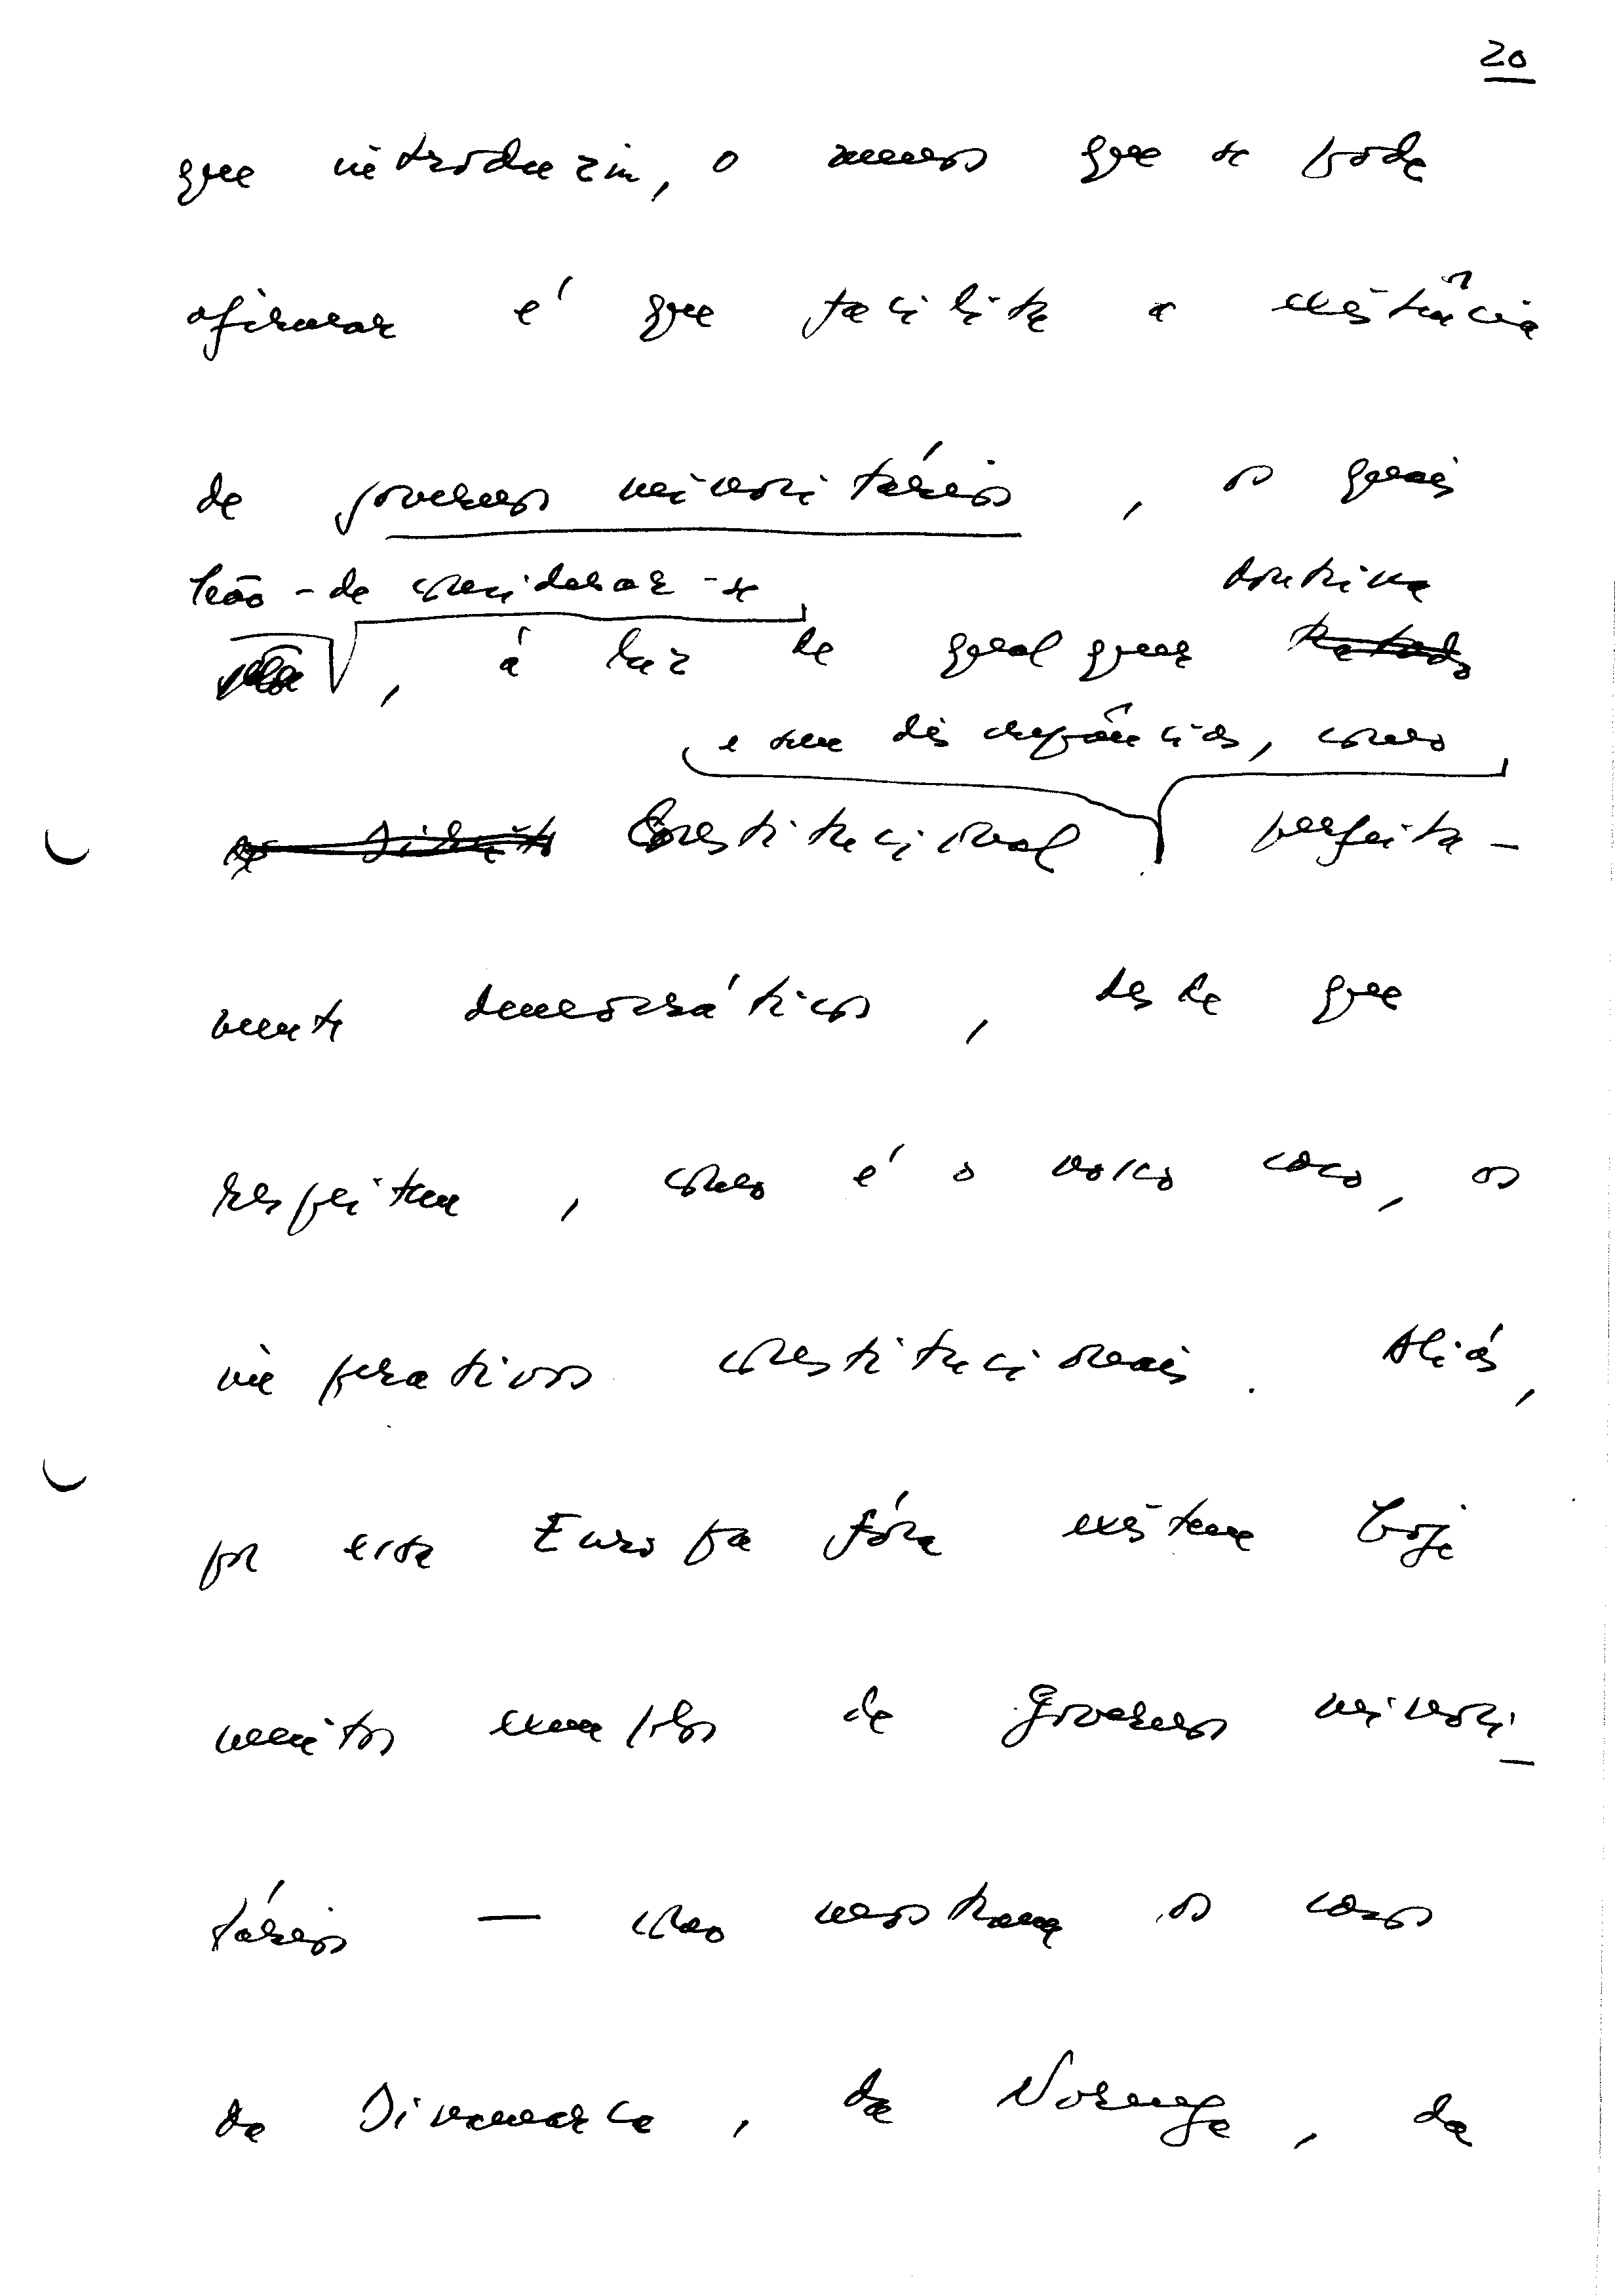 20
que introduziu, o menos que se pode
afirmar é que facilita a existência
de governos minoritários, os quais
hão-de considerar-se doutrina
, à luz de qualquer
e sem discrepâncias, como
Constitucional perfeita-
mente democráticos, desde que
respeitem, como é o nosso caso, os
imperativos constitucionais. Aliás,
por essa Europa fóra existem hoje
muitos exemplos de Governos minori-
tários — como mostram os casos
da Dinamarca, da Noruega, da